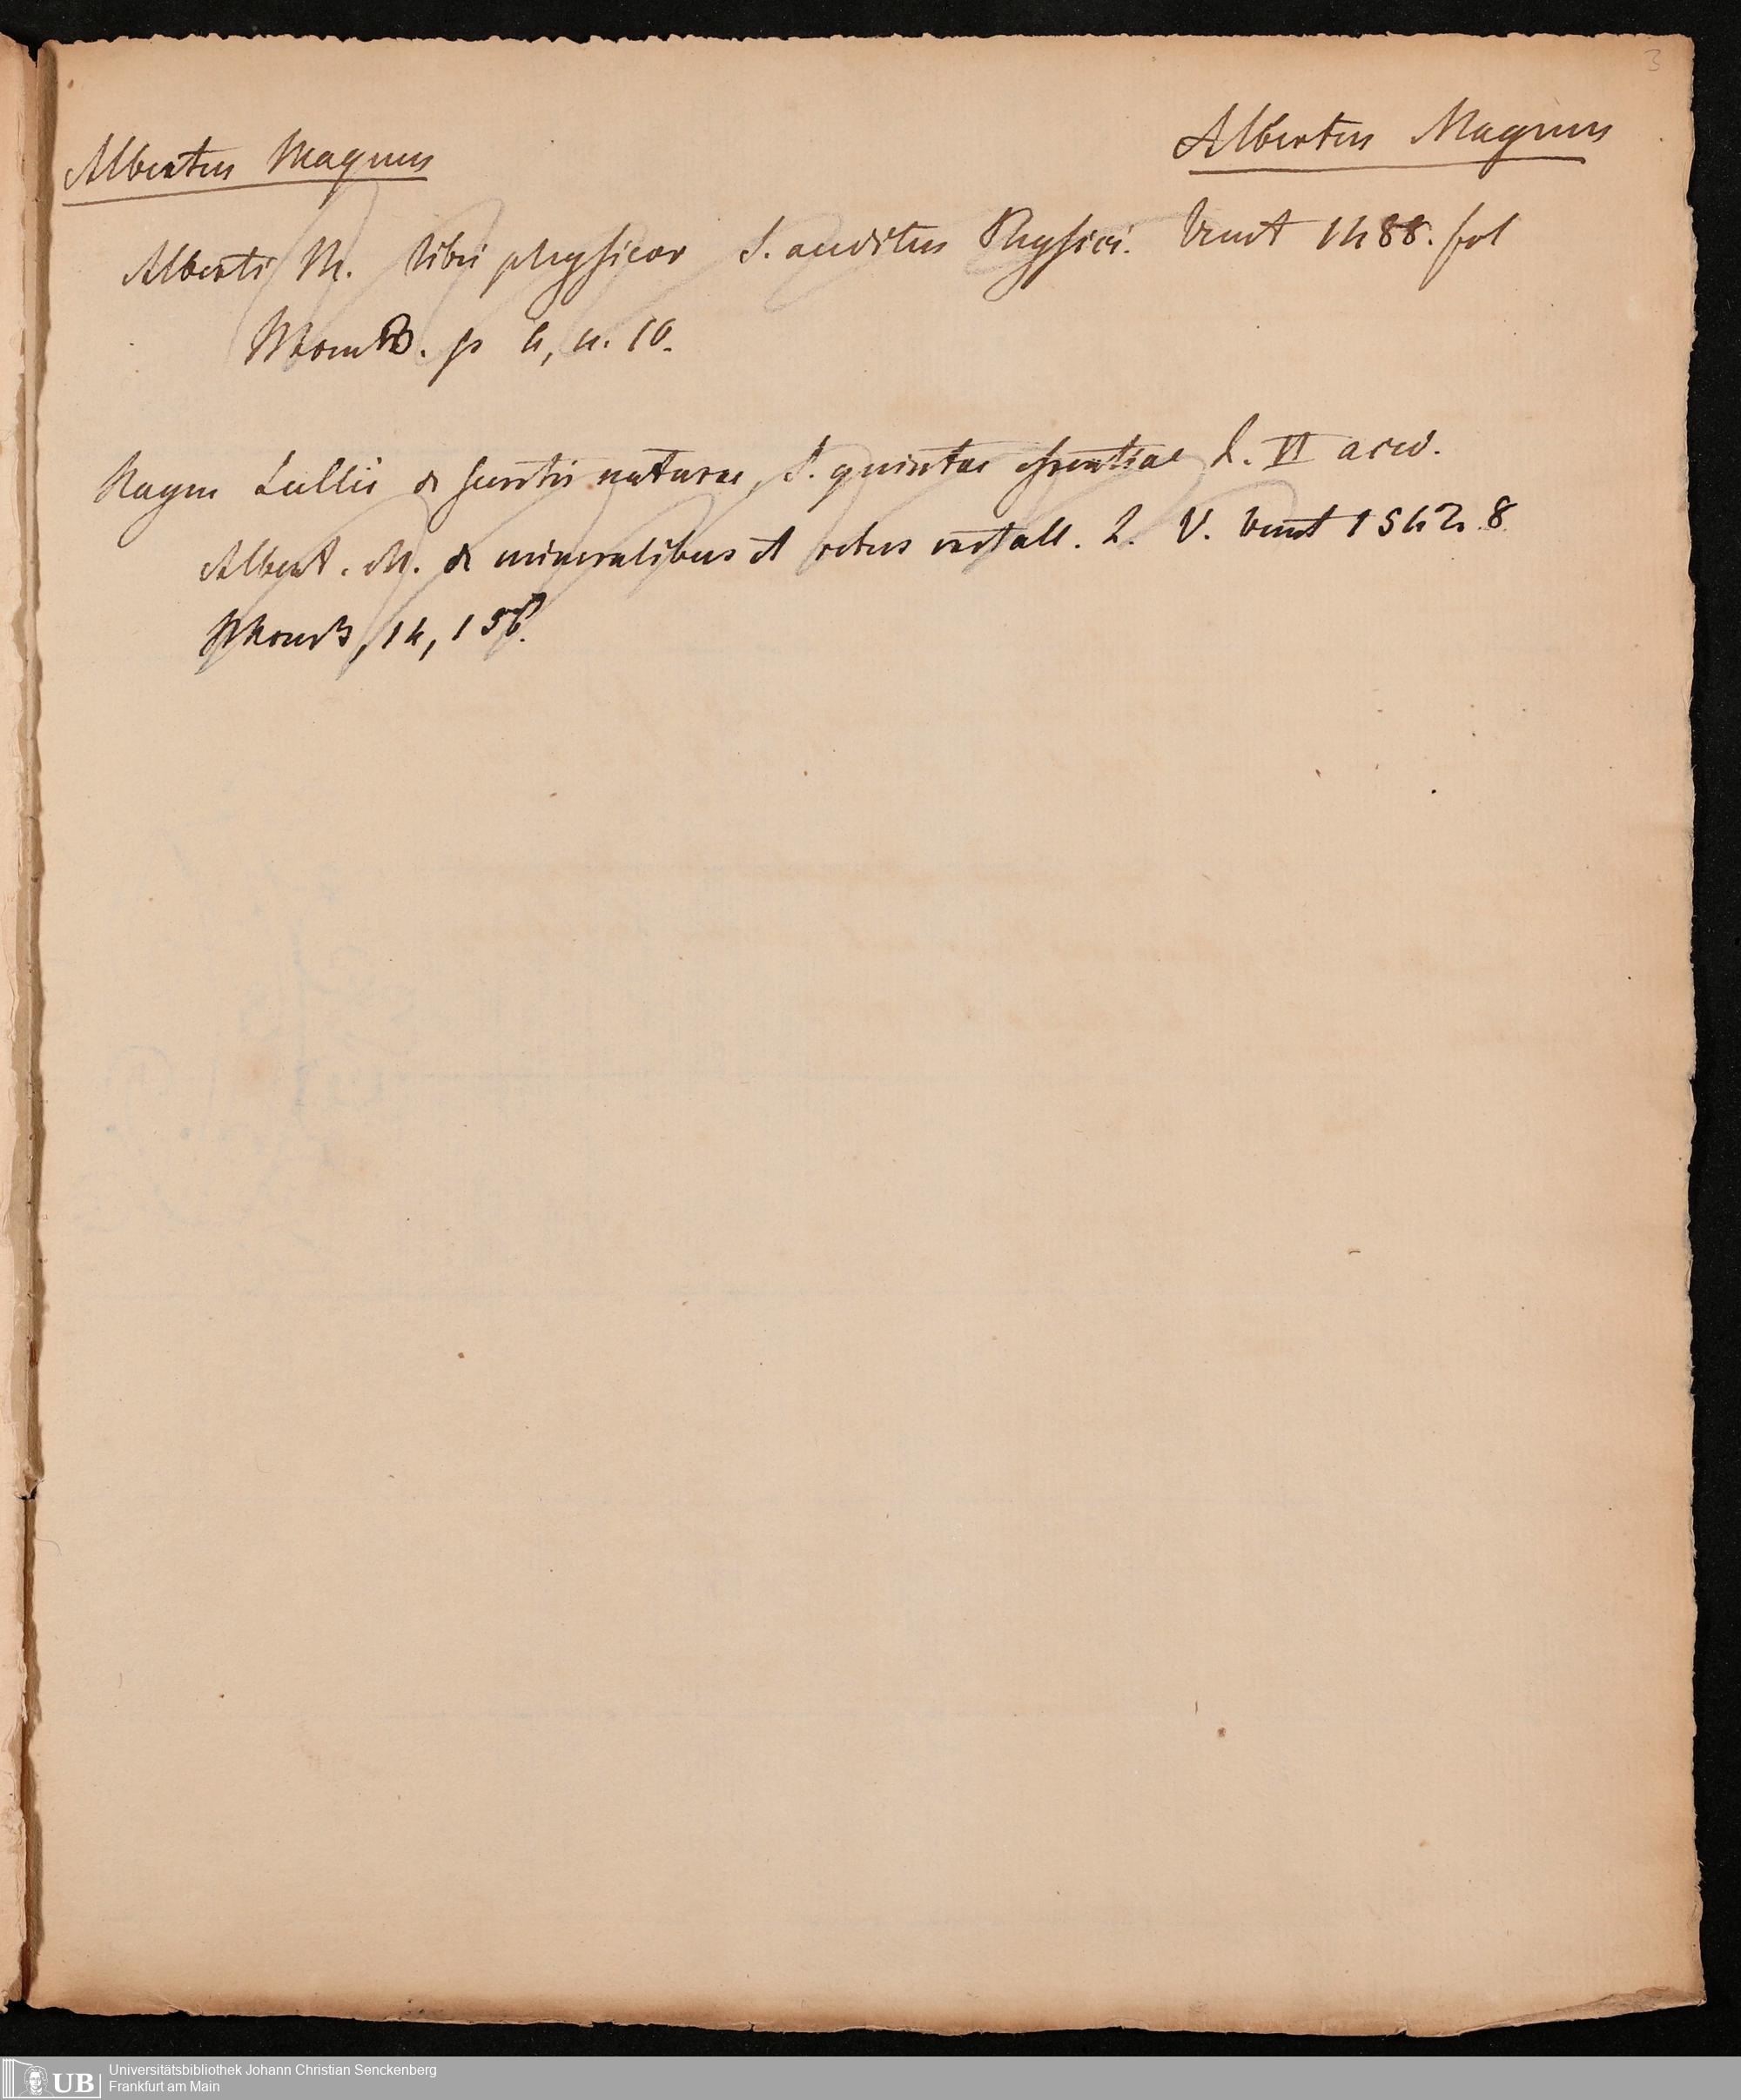 3
Albertus Magnus
Albertus Magnus
Alberti M. libri physicor S. auditus Physici. Venet 1488. fol
p 4, n. 10.
Raym Lullii de secretis naturae, S. quintae essentiae L. VI acced.
Albert. M. de mineralibus et rebus metall. L. V. Venet 1542. 8
14, 156.
UB
Universitätsbibliothek Johann Christian Senckenberg
Frankfurt am Main